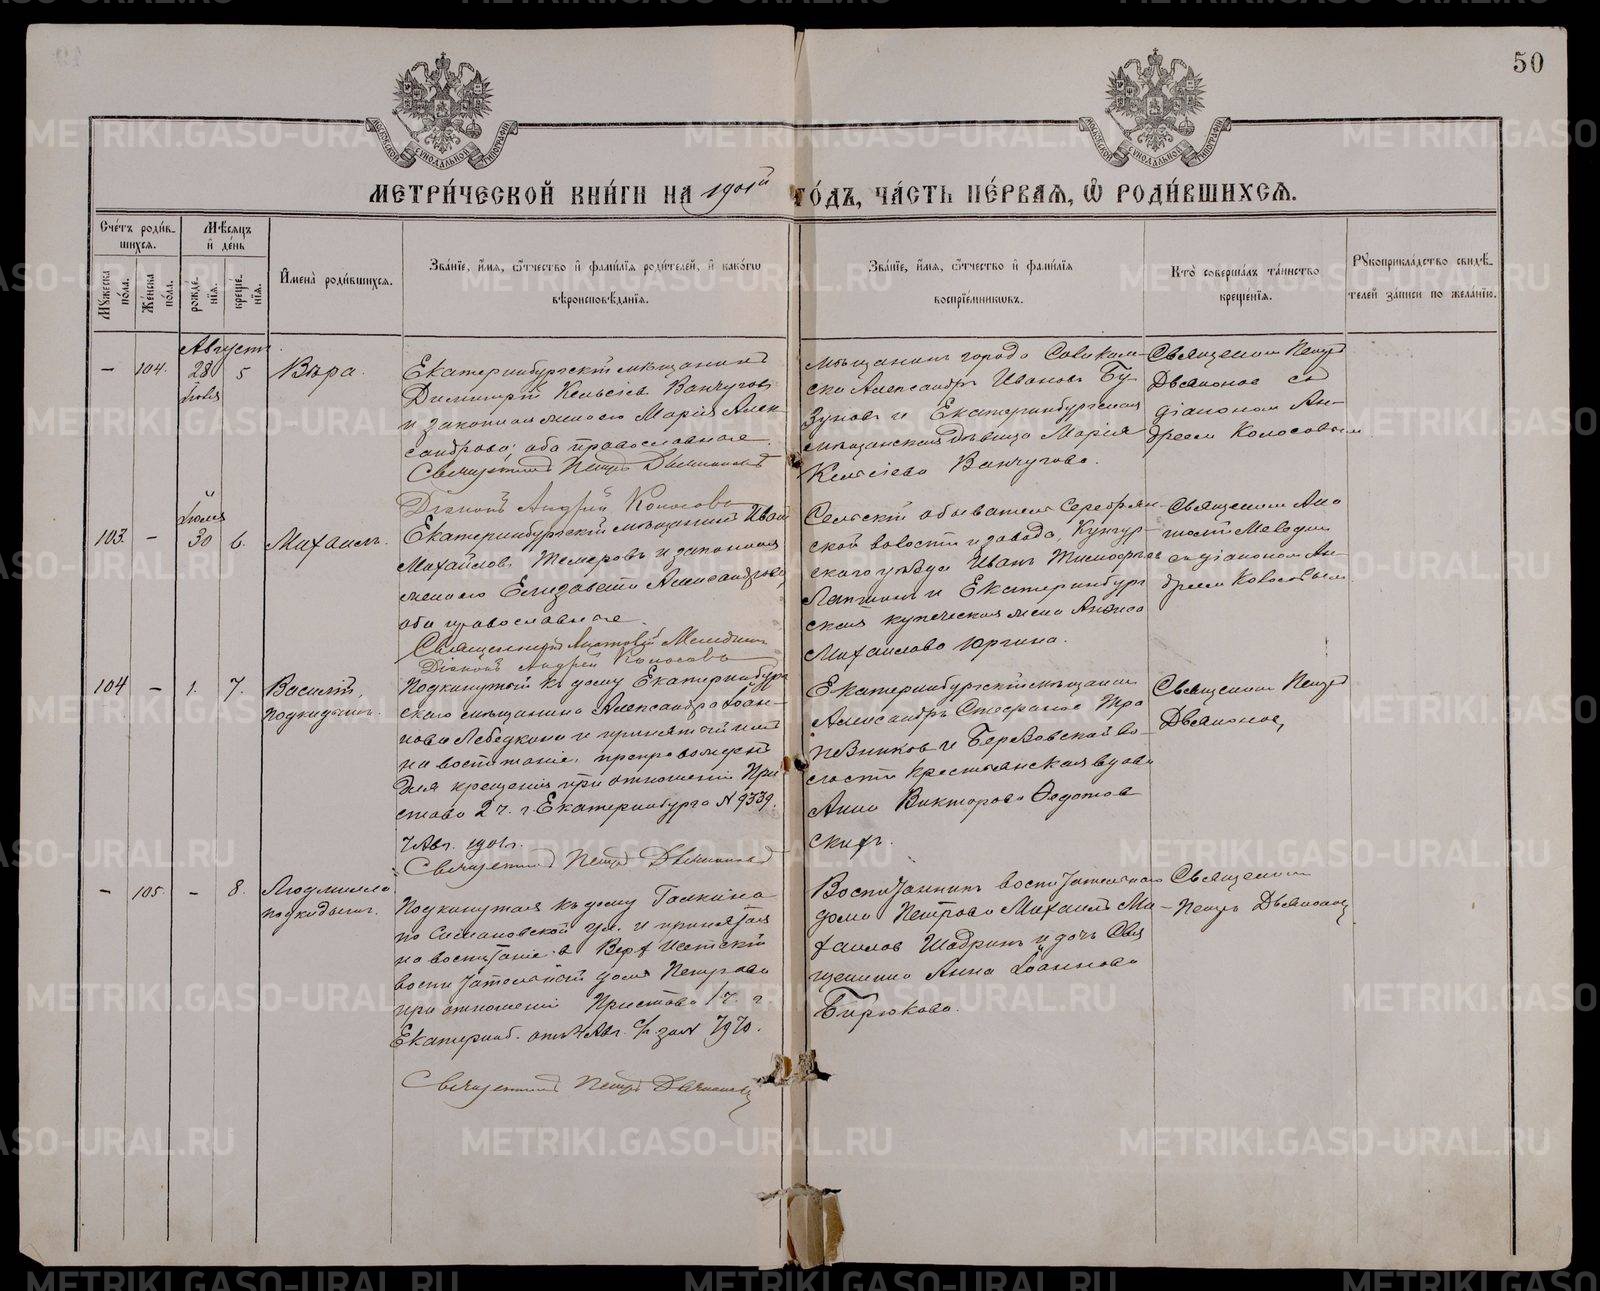 50
МОСКОВСКОЙ СѴНОДАЛЬНОЙ ТИПОГРАФІИ
МОСКОВСКОЙ СѴНОДАЛЬНОЙ ТИПОГРАФІИ
МЕТРИ́ЧЕСКОЙ КНИ́ГИ НА 1901й ГО́ДЪ, ЧА́СТЬ ПЕ́РВАѦ, Ѡ РОДИ́ВШИХСѦ.
Сче́тъ роди́в-
шихсѧ.
Мꙋжеска по́ла.
Же́нска по́ла.
Мѣ́сѧцъ
и҆ де́нь
рожде́-нїѧ.
креще́-нїѧ.
И҆мена̀ роди́вшихсѧ.
Зва́нїе, и҆́мѧ, ѻ҆́тчество и҆ фами́лїѧ роди́телей, и҆ како́гѡ
вѣроисповѣ́данїѧ.
Зва́нїе, и҆́мѧ, ѻ҆́тчество и҆ фами́лїѧ
воспрїе́мникѡвъ.
Кто̀ соверша́лъ та́инство
креще́нїѧ.
Рꙋкоприкла́дство свидѣ́-
телей за́писи по жела́нїю.
Августъ.
– 104. 28 5 Вѣра.
Іюля
Екатеринбургскій мѣщанинъ
Димитрій Кельсіевъ Ванчуговъ
и законная жена его Марія Алек-
сандрова; оба православные.
Священникъ Петръ Двѣаионовъ
Діаконъ Андрей Колосовъ
мѣщанинъ города Соликам-
ска Александръ Ивановъ Бу-
зуновъ и Екатеринбургская
мѣщанская дѣвица Марія
Кельсіева Ванчугова.
Священникъ Петръ
съ
діакономъ Ан-
дреемъ Колосовымъ
Іюля
103 – 30 6. Михаилъ.
Екатеринбургскій мѣщанинъ Иванъ
Михайловъ Темеровъ и законная
жена его Елизавета Александрова
оба православные.
Священникъ
Діаконъ Андрей Колосовъ
Сельскій обыватель Серебрян-
ской волости и завода, Кунгур-
скаго уѣзда Иванъ Тимофѣевъ
Лапшинъ и Екатеринбург
ская купеческая жена Анфиса
Михаилова Юргина.
Священникъ Ана
толій Меѳодіи
съ діакономъ Ан-
дреемъ Колосовымъ
104 – 1. 7. Василій,
подкидышъ.
Подкинутый къ дому Екатеринбург
скаго мѣщанина Александра Іоан-
нова Лебедкина и принятый имъ
на воспитаніе, препровожденъ
для крещенія при отношеніи При
става 2 ч. г. Екатеринбурга № 9339.
7 Авг. 1901 г.
Священникъ Петръ
Екатеринбургскій мѣщанинъ
Александръ Стефановъ Про
и Березовской во-
лости крестьянская вдова
Анна Викторова Ѳедотов
скихъ.
Священникъ Петръ
– 105. – 8. Людмилла
подкидышъ.
Подкинутая къ дому Галкина
по Симановской ул. и принятая
на воспитаніе въ Верх Исетскій
воспитательный домъ Петрова
при отношеніи Пристава 1 ч. г.
Екатеринб. отъ 4 Авг. с/г. за № 7970.
Священникъ Петръ
Воспитанникъ воспитательнаго
дома Петрова Михаилъ Ми-
хаиловъ Шадринъ и дочь Свя
щенника Анна Іоаннова
Бирюкова.
Священникъ
Петръ
METRIKI.GASO-URAL.RU